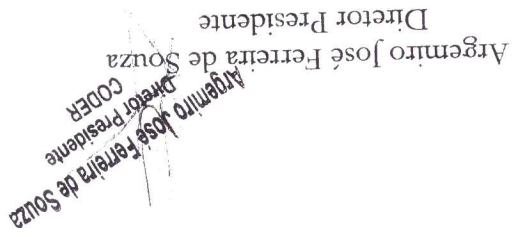 Argemiro José Ferreira de Souza
Diretor Presidente
CODER
Argemiro José Ferreira de Souza
Diretor Presidente